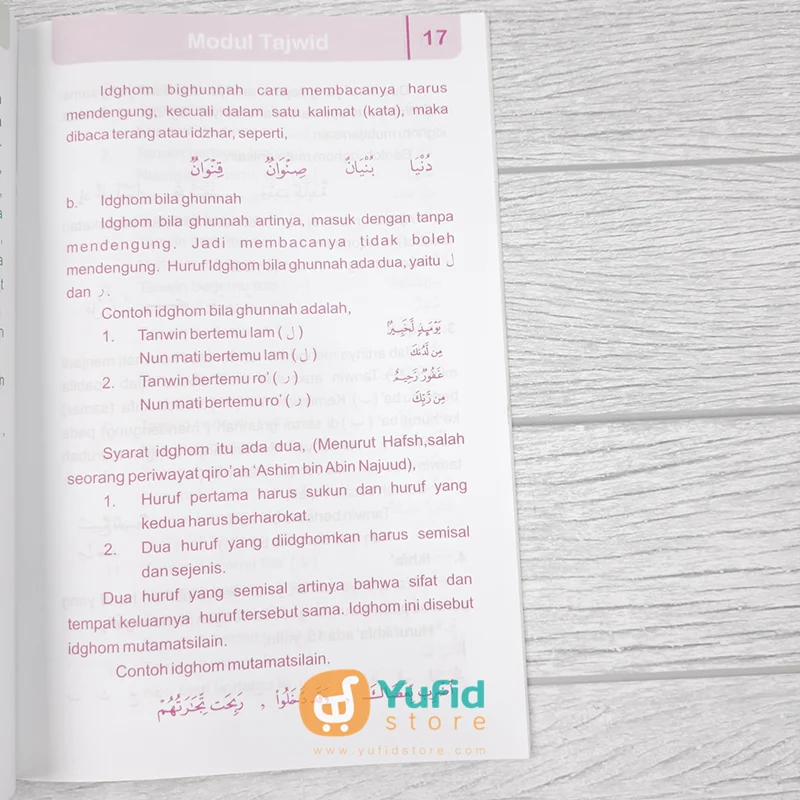 Modul Tajwid 17
Idghom bighunnah cara membacanya harus
mendengung, kecuali dalam satu kalimat (kata), maka
dibaca terang atau idzhar, seperti,
دُنْيَا بُنْيَانٌ صِنْوَانٌ قِنْوَانٌ
b. Idghom bila ghunnah
Idghom bila ghunnah artinya, masuk dengan tanpa
mendengung. Jadi membacanya tidak boleh
mendengung. Huruf Idghom bila ghunnah ada dua, yaitu ل
dan ر.
Contoh idghom bila ghunnah adalah,
1. Tanwin bertemu lam ( ل ) يَوْمَئِذٍ لَّخَبِيرٌ
Nun mati bertemu lam ( ل ) مِن لَّدُنْكَ
2. Tanwin bertemu ro' ( ر ) غَفُورٌ رَّحِيمٌ
Nun mati bertemu ro' ( ر ) مِن رَّبِّكَ
Syarat idghom itu ada dua, (Menurut Hafsh,salah
seorang periwayat qiro'ah 'Ashim bin Abin Najuud),
1. Huruf pertama harus sukun dan huruf yang
kedua harus berharokat.
2. Dua huruf yang diidghomkan harus semisal
dan sejenis.
Dua huruf yang semisal artinya bahwa sifat dan
tempat keluarnya huruf tersebut sama. Idghom ini disebut
idghom mutamatsilain.
Contoh idghom mutamatsilain.
دَّخَلُوا , رَبِحَت تِّجَارَتُهُمْ
Yufid
store
www.yufidstore.com